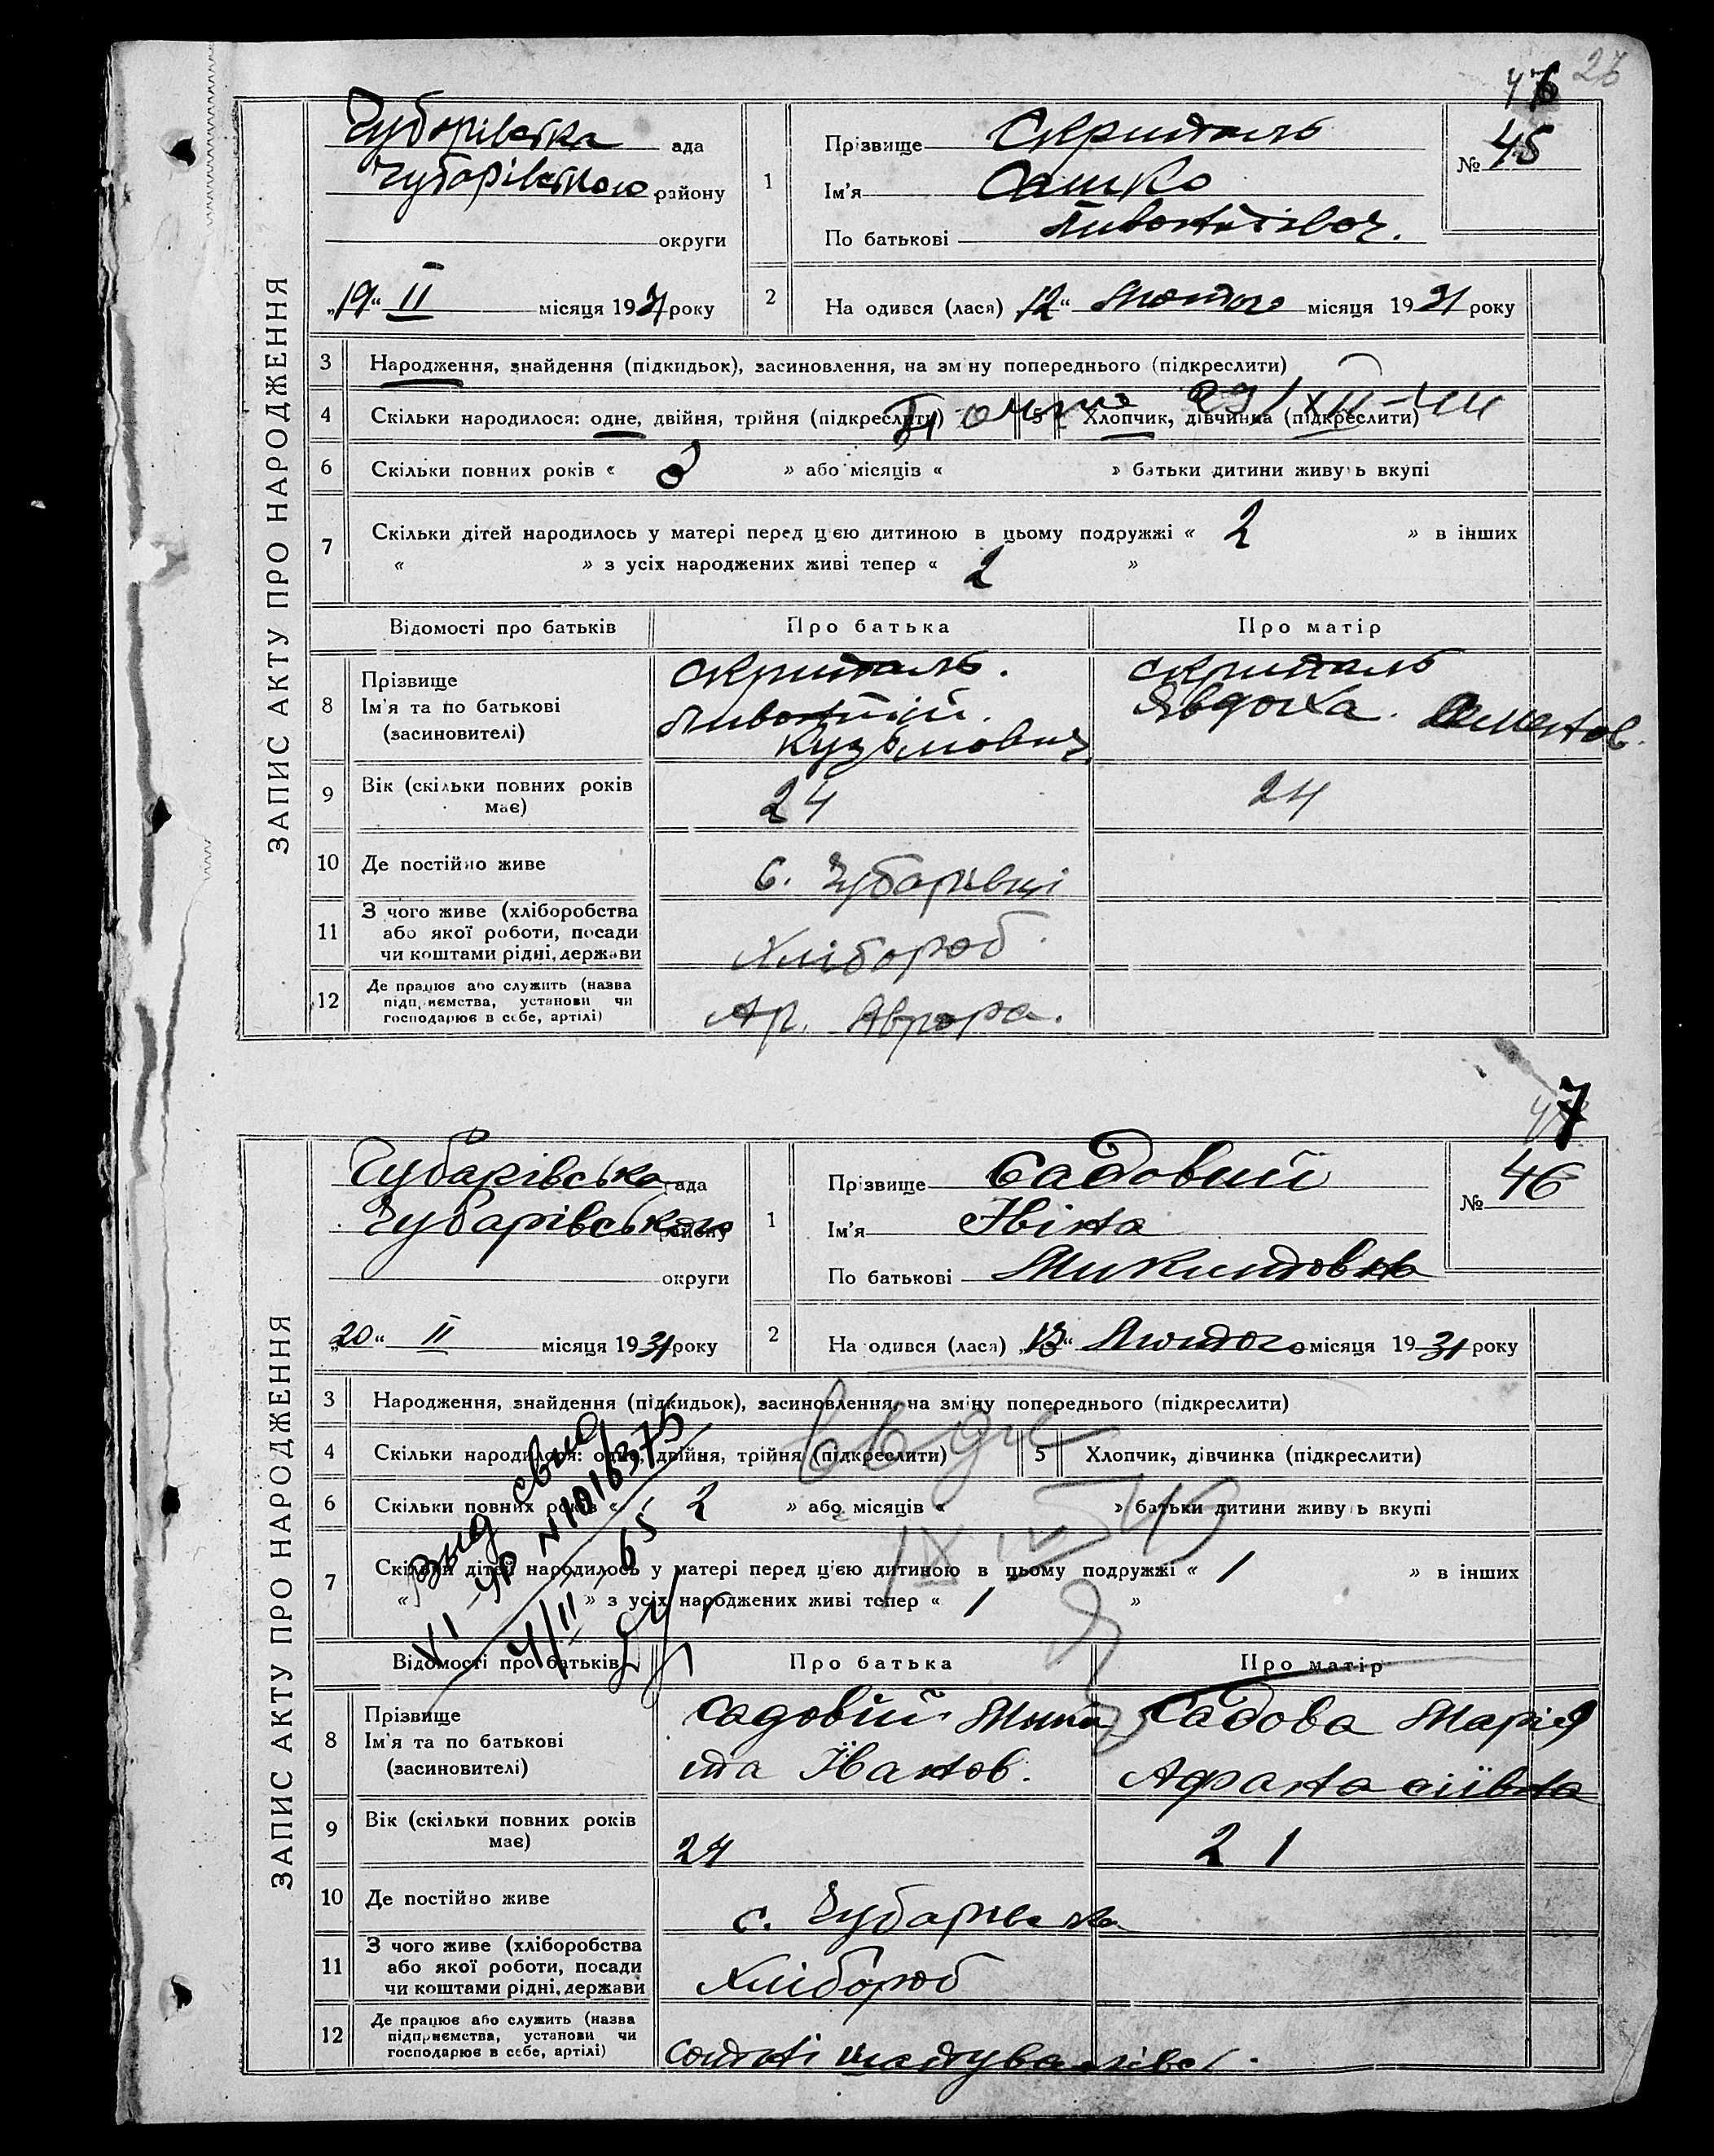 26
ЗАПИС АКТУ ПРО НАРОДЖЕННЯ
Чубарівська ада
Чубарівського району
округи
„19“ II місяця 1931 року
1
Прізвище Скрипаль
Ім'я Сашко
По батькові
№ 45
2
На одився (лася) „12“ Лютого місяця 1931 року
3 Народження, знайдення (підкидьок), засиновлення, на зміну попереднього (підкреслити)
4 Скільки народилося: одне, двійня, трійня (підкреслити) 5 Хлопчик, дівчинка (підкреслити)
6 Скільки повних років « » або місяців « » батьки дитини живуть вкупі
7 Скільки дітей народилось у матері перед цією дитиною в цьому подружжі « 2 » в інших
« » з усіх народжених живі тепер « 2 »
Відомості про батьків Про батька Про матір
8 Прізвище
Ім'я та по батькові
(засиновителі)
Скрипаль.
Кузьмович
Скрипаль
Явдоха.
9 Вік (скільки повних років має) 24 24
10 Де постійно живе с. Чубарівці
11 З чого живе (хліборобства
або якої роботи, посади
чи коштами рідні, держави
Хлібороб
12 Де працює або служить (назва
підприємства, установи чи
господарює в себе, артілі)
Ар. Аврора.
7
ЗАПИС АКТУ ПРО НАРОДЖЕННЯ
Чубарівська ада
Чубарівського району
округи
„20“ II місяця 1931 року
1
Прізвище Садовий
Ім'я Ніна
По батькові Микитовна
№ 46
2
На одився (лася) „13“ Лютого місяця 1931 року
3 Народження, знайдення (підкидьок), засиновлення, на зміну попереднього (підкреслити)
4 Скільки народилося: одне, двійня, трійня (підкреслити) 5 Хлопчик, дівчинка (підкреслити)
6 Скільки повних років « 2 » або місяців « » батьки дитини живуть вкупі
7 Скільки дітей народилось у матері перед цією дитиною в цьому подружжі « 1 » в інших
« » з усіх народжених живі тепер « 1 »
Выд свид
VI-УР № 1016375
4/II 65
Відомості про батьків Про батька Про матір
8 Прізвище
Ім'я та по батькові
(засиновителі)
Садовий Мики
та Іванов.
Садова Марія
Афанасіївна
9 Вік (скільки повних років має) 24 21
10 Де постійно живе с. Чубарівка
11 З чого живе (хліборобства
або якої роботи, посади
чи коштами рідні, держави
Хлібороб
12 Де працює або служить (назва
підприємства, установи чи
господарює в себе, артілі)